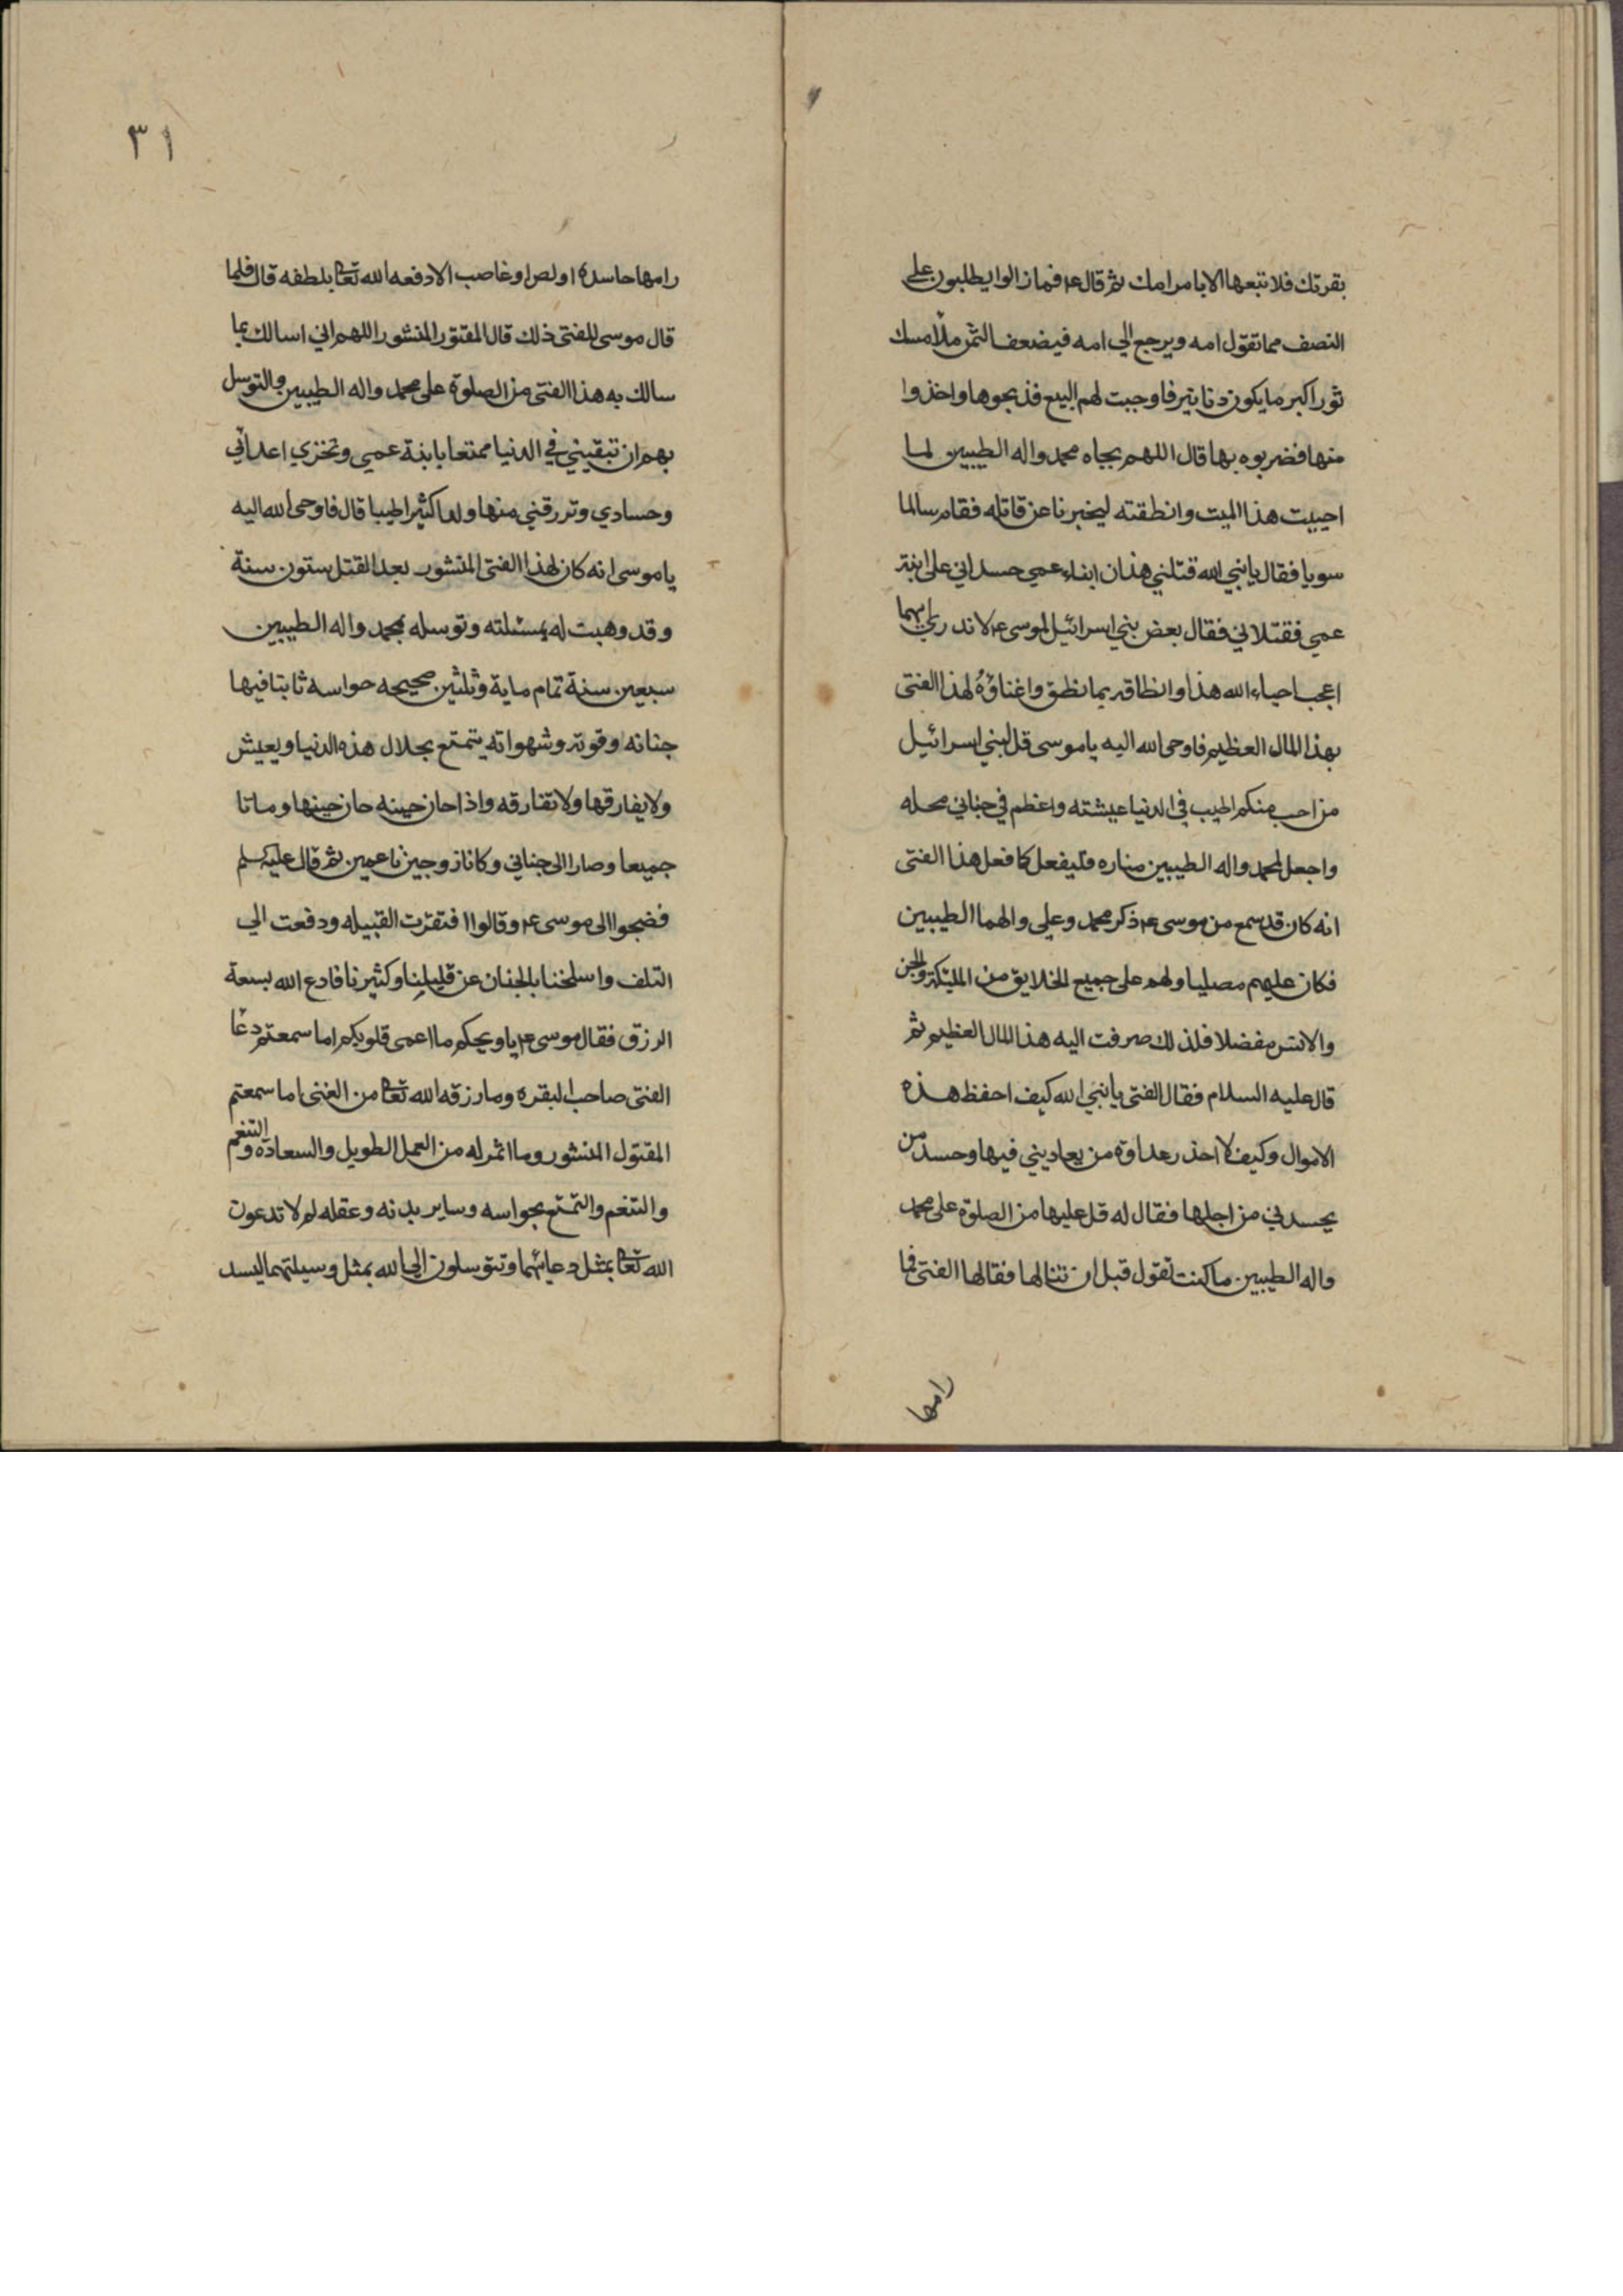 بقرتك فلا تبعها الا بامر امك ثم قال ع فما زالوا يطلبون على
النصف مما تقول امه ويرجع الي امه فيضعف الثمن ملأ مسك
ثور اكبر ما يكون دنانير فاوجبت لهم البيع فذبحوها واخذوا
منها فضربوه بها قال اللهم بجاه محمد واله الطيبين لما
احييت هذا الميت وانطقته ليخبرنا عن قاتله فقام سالما
سويا فقال يا نبي الله قتلني هذان ابناء عمي حسداني على ابنة
عمي فقتلاني فقال بعض بني اسرائيل لموسى ع لا ندري ايهما
اعجب احياء الله هذا وانطاقه بما نطق واغناؤه لهذا الفتى
بهذا المال العظيم فاوحى الله اليه يا موسى قل لبني اسرائيل
من احب منكم اطيب في الدنيا عيشته واعظم في جناني محله
واجعل لمحمد واله الطيبين مناره فليفعل كما فعل هذا الفتى
انه كان قد سمع من موسى ع ذكر محمد وعلي والهما الطيبين
فكان عليهم مصليا ولهم على جميع الخلايق من الملئكة والجن
والانس مفضلا فلذلك صرفت اليه هذا المال العظيم ثم
قال عليه السلام فقال الفتى يا نبي الله كيف احفظ هذه
الاموال وكيف لا احذر عداوة من يعاديني فيها وحسد من
يحسدني من اجلها فقال له قل عليها من الصلوة على محمد
واله الطيبين ما كنت تقول قبل ان تنالها فقالها الفتى فما
رامها
٣١
رامها حاسده اولص او غاصب الا دفعه الله تعا بلطفه قال فلما
قال موسى للفتى ذلك قال المقتول المنشور اللهم اني اسالك بما
سالك به هذا الفتى من الصلوة على محمد واله الطيبين والتوسل
بهم ان تبقيني في الدنيا ممتعا بابنة عمي وتخزي اعدائي
وحسادي وترزقني منها ولدا كثيرا طيبا قال فاوحى الله اليه
يا موسى انه كان لهذا الفتى المنشور بعد القتل ستون سنة
وقد وهبت له بمسئلته وتوسله بمحمد واله الطيبين
سبعين سنة تمام ماية وثلثين صحيحه حواسه ثابتا فيها
جنانه وقوته وشهواته يتمتع بحلال هذه الدنيا ويعيش
ولا يفارقها ولا تفارقه واذا حان حينه حان حينها وماتا
جميعا وصارا الى جناني وكانا زوجين ناعمين ثم قال عليه سلم
فضجوا الى موسى ع وقالوا افتقرت القبيله ودفعت الي
التلف واسلخنا بلجنان عن قليلنا وكثيرنا فادع الله بسعة
الرزق فقال موسى ع يا ويحكم ما اعمى قلوبكم اما سمعتم دعا
الفتى صاحب البقره وما رزقه الله تعا من الغنى اما سمعتم
المقتول المنشور وما اثمر له من العمل الطويل والسعادة والتنغم
والتنغم والتمتع بحواسه وساير بدنه وعقله لم لا تدعون
الله تعا بمثل دعائهما وتتوسلون الى الله بمثل وسيلتهما ليسد